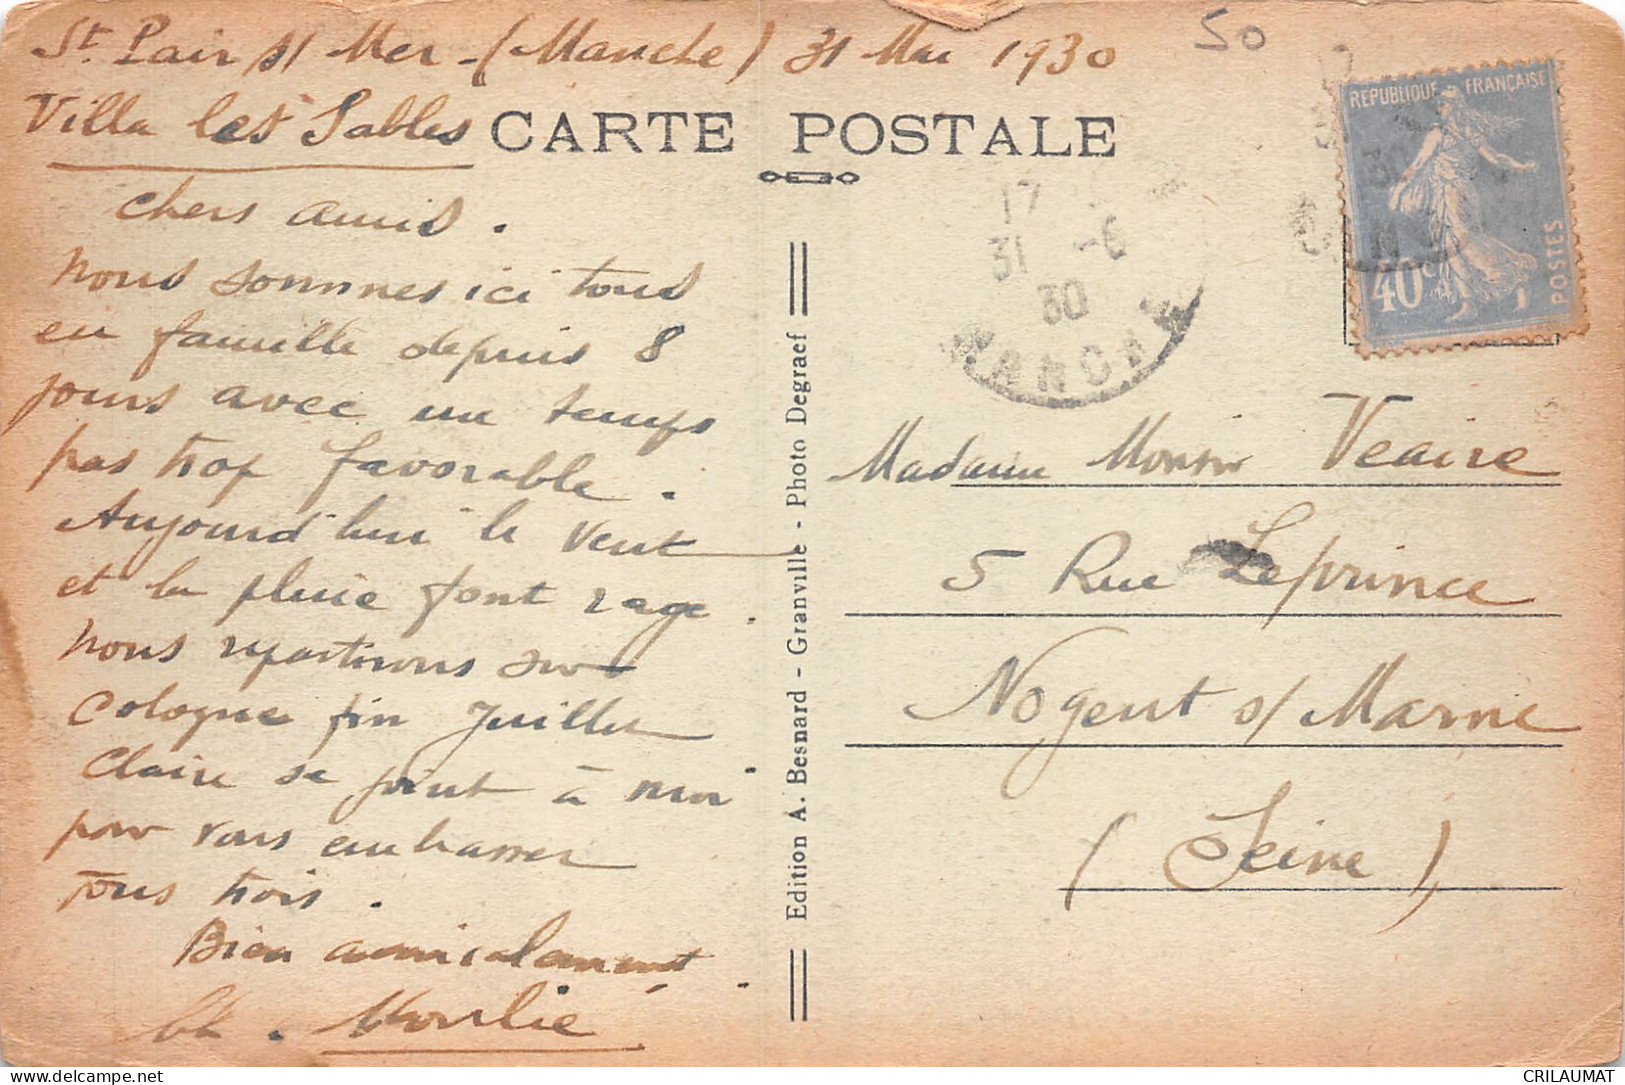 St. Pair s/ Mer - (Manche) 31 Mai 1930
Villa les Sables
CARTE POSTALE
Chers amis.
nous sommes ici tous
en famille depuis 8
jours avec un temps
pas trop favorable.
Aujourd'hui le vent
et la pluie font rage.
nous repartirons sur
Cologne fin Juillet
Claire se joint à moi
pour vous embrasser
tous trois.
Bien amicalement.
50
REPUBLIQUE FRANÇAISE
40c
POSTES
17
31 -6
30
MANCHE
Edition A. Besnard - Granville - Photo Degraef
Madame Monsieur Veaire
5 Rue Leprince
Nogent s/ Marne
(Seine)
CRILAUMAT